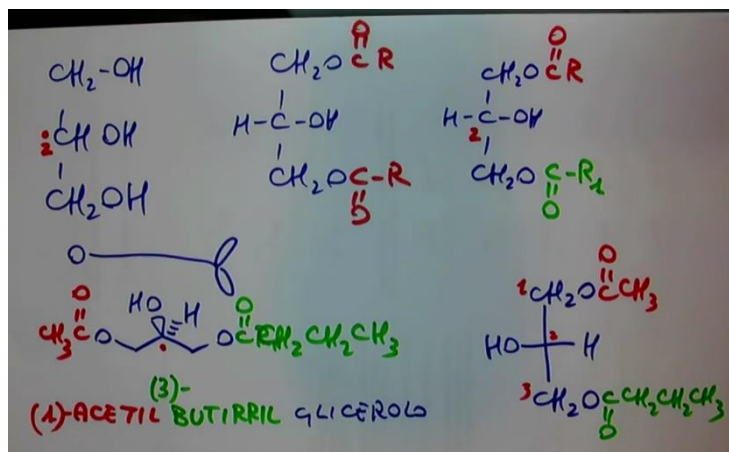 CH2-OH
2 CH OH
CH2OH
O
CH2O C R
H-C-OH
CH2O C-R
O
O
CH2O C R
H-C-OH
2
CH2O C-R1
O
O
HO H
O
CH3 C O
O C CH2CH2CH3
(3)-
(1)-ACETIL BUTIRRIL GLICEROLO
O
1 CH2OCCH3
HO 2 H
3 CH2OCCH2CH2CH3
O